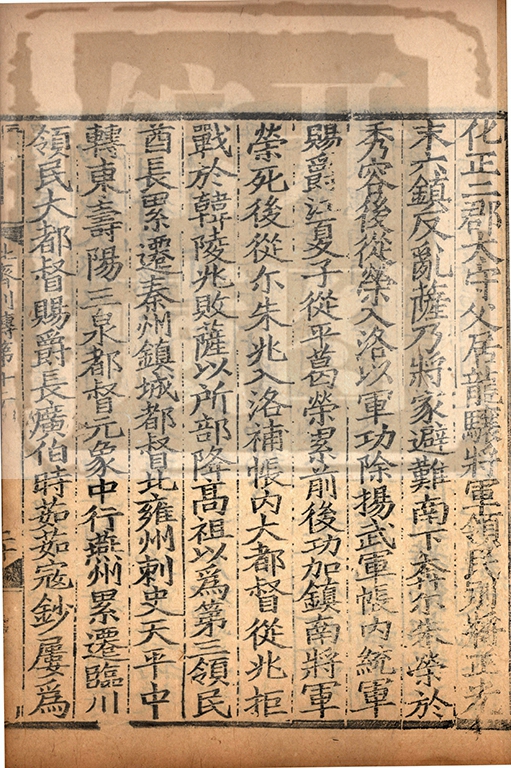 化正二郡太守父居龍驤將軍領民別將正光
末六鎮反亂薩乃將家避難南下奔尔朱榮於
秀容後從榮入洛以軍功除揚武軍帳內統軍
賜爵江夏子從平葛榮累前後功加鎮南將軍
榮死後從尔朱兆入洛補帳內大都督從兆拒
戰於韓陵兆敗薩以所部降高祖以爲第三領民
酋長累遷秦州鎮城都督北雍州刺史天平中
轉東壽陽三泉都督元象中行燕州累遷臨川
領民大都督賜爵長爌伯時茹茹寇鈔屢爲